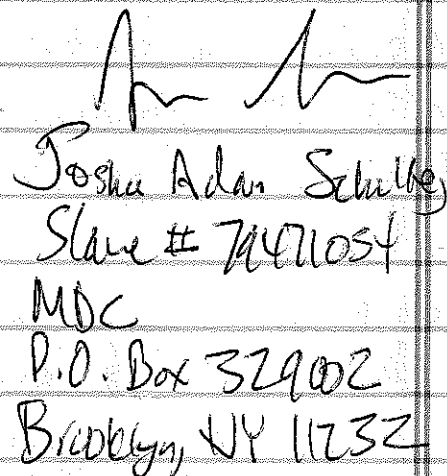 Joshua Adam Schulte
Slave # 79471054
MDC
P.O. Box 329002
Brooklyn, NY 11232